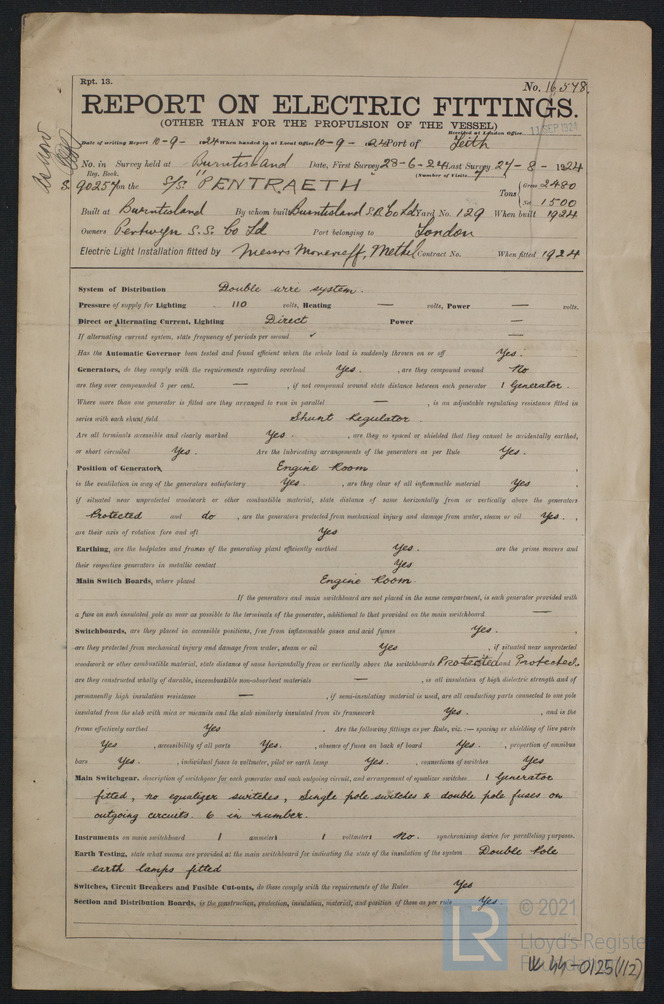 Rpt. 13.
No. 16,548.
REPORT ON ELECTRIC FITTINGS.
(OTHER THAN FOR THE PROPULSION OF THE VESSEL)
Received at London Office 11 SEP 1924
Date of writing Report 10-9-1924 When handed in at Local Office 10-9-1924 Port of Leith
No. in Survey held at Burntisland Date, First Survey 23-6-24 Last Survey 27-8-1924
Reg. Book. (Number of Visits 7)
90257 on the S/S "PENTRAETH Tons Gross 2480
Net 1500
Built at Burntisland By whom built Burntisland S.B. Co Ld Yard No. 129 When built 1924
Owners Pentwyn S.S. Co Ld Port belonging to London
Electric Light Installation fitted by Messrs Moncrieff, Methil Contract No. When fitted 1924
System of Distribution Double wire system.
Pressure of supply for Lighting 110 volts, Heating — volts, Power — volts.
Direct or Alternating Current, Lighting Direct Power —
If alternating current system, state frequency of periods per second ✓ —
Has the Automatic Governor been tested and found efficient when the whole load is suddenly thrown on or off Yes.
Generators, do they comply with the requirements regarding overload Yes. , are they compound wound No
are they over compounded 5 per cent. — , if not compound wound state distance between each generator 1 Generator.
Where more than one generator is fitted are they arranged to run in parallel — , is an adjustable regulating resistance fitted in
series with each shunt field. Shunt Regulator.
Are all terminals accessible and clearly marked Yes. , are they so spaced or shielded that they cannot be accidentally earthed,
or short circuited Yes. Are the lubricating arrangements of the generators as per Rule Yes.
Position of Generators, Engine Room ,
is the ventilation in way of the generators satisfactory Yes. , are they clear of all inflammable material Yes ,
if situated near unprotected woodwork or other combustible material, state distance of same horizontally from or vertically above the generators
Protected and do , are the generators protected from mechanical injury and damage from water, steam or oil Yes. ,
are their axis of rotation fore and aft Yes
Earthing, are the bedplates and frames of the generating plant efficiently earthed Yes. are the prime movers and
their respective generators in metallic contact Yes
Main Switch Boards, where placed Engine Room.
If the generators and main switchboard are not placed in the same compartment, is each generator provided with
a fuse on each insulated pole as near as possible to the terminals of the generator, additional to that provided on the main switchboard —
Switchboards, are they placed in accessible positions, free from inflammable gases and acid fumes Yes. ,
are they protected from mechanical injury and damage from water, steam or oil Yes , if situated near unprotected
woodwork or other combustible material, state distance of same horizontally from or vertically above the switchboards Protected and Protected.
are they constructed wholly of durable, incombustible non-absorbent materials — , is all insulation of high dielectric strength and of
permanently high insulation resistance — , if semi-insulating material is used, are all conducting parts connected to one pole
insulated from the slab with mica or micanite and the slab similarly insulated from its framework Yes. , and is the
frame effectively earthed Yes . Are the following fittings as per Rule, viz.:— spacing or shielding of live parts
Yes , accessibility of all parts Yes. , absence of fuses on back of board Yes. , proportion of omnibus
bars Yes. , individual fuses to voltmeter, pilot or earth lamp Yes. , connections of switches Yes
Main Switchgear, description of switchgear for each generator and each outgoing circuit, and arrangement of equalizer switches 1 Generator
fitted, no equalizer switches, Single pole switches & double pole fuses on
outgoing circuits. 6 in number.
Instruments on main switchboard 1 ammeters 1 voltmeters No. synchronising device for paralleling purposes.
Earth Testing, state what means are provided at the main switchboard for indicating the state of the insulation of the system Double Pole
earth lamps fitted
Switches, Circuit Breakers and Fusible Cut-outs, do these comply with the requirements of the Rules Yes
Section and Distribution Boards, is the construction, protection, insulation, material, and position of these as per rule Yes.
LR © 2021
Lloyd's Register
W 44-0125(1/2)